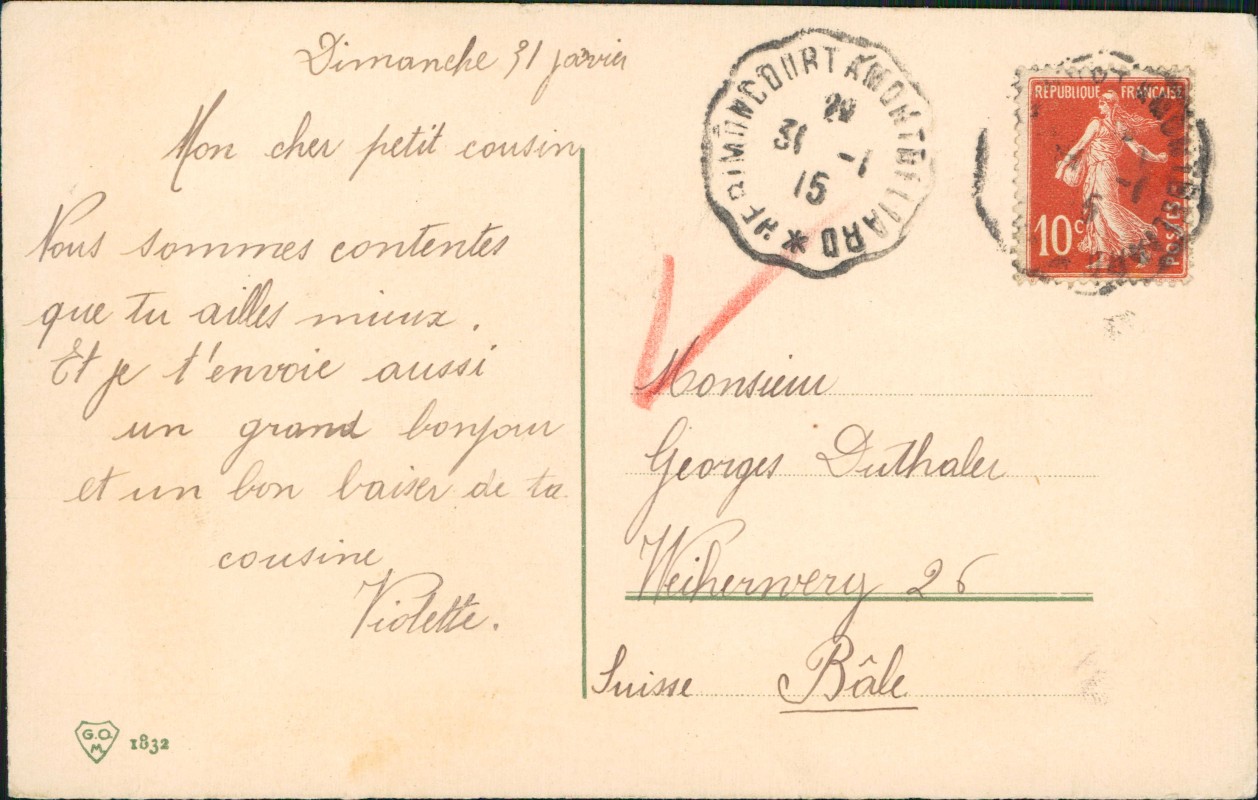 Dimanche 31 janvier
Mon cher petit cousin
Nous sommes contentes
que tu ailles mieux.
Et je t'envoie aussi
un grand bonjour
et un bon baiser de ta
cousine
Violette.
HERIMONCOURT A MONTBELIARD *
31 -1
15
RÉPUBLIQUE FRANÇAISE
10c
POSTES
Monsieur
Georges Duthaler
Weiherwerg 26
Suisse Bâle
G.O.
M.
1832